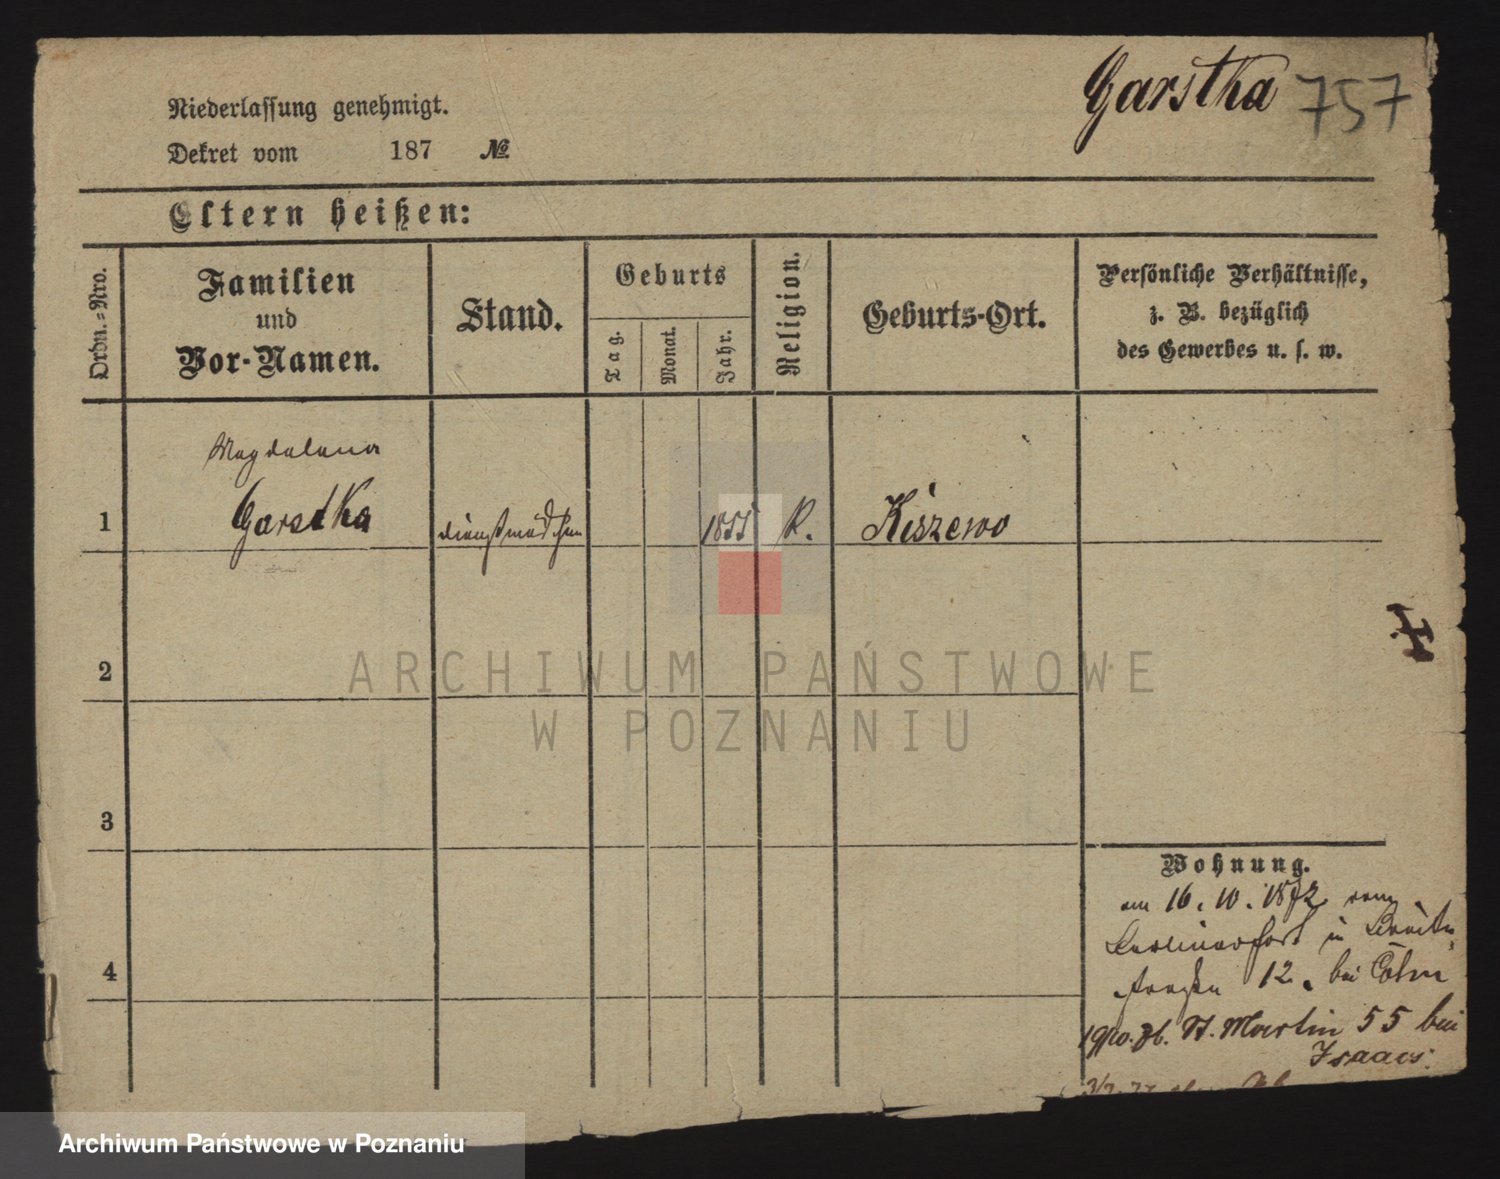 Garstka 757
Niederlassung genehmigt.
Dekret vom 187 №
Eltern heißen:
Ordn.=Nro.
Familien
und
Vor-Namen.
Stand.
Geburts
Tag.
Monat.
Jahr.
Religion.
Geburts-Ort.
Persönliche Verhältnisse,
z. B. bezüglich
des Gewerbes u. s. w.
Magdalena
1 Garstka Dienstmädchen 1855 K. Kiszewo
2
3
4
Wohnung.
am 16. 10. 1872 vom
Berlinerfort in Breite
straße 12. bei Cohn
19/10. 76. St. Martin 55 bei
Isaacs.
ARCHIWUM PAŃSTWOWE
W POZNANIU
Archiwum Państwowe w Poznaniu